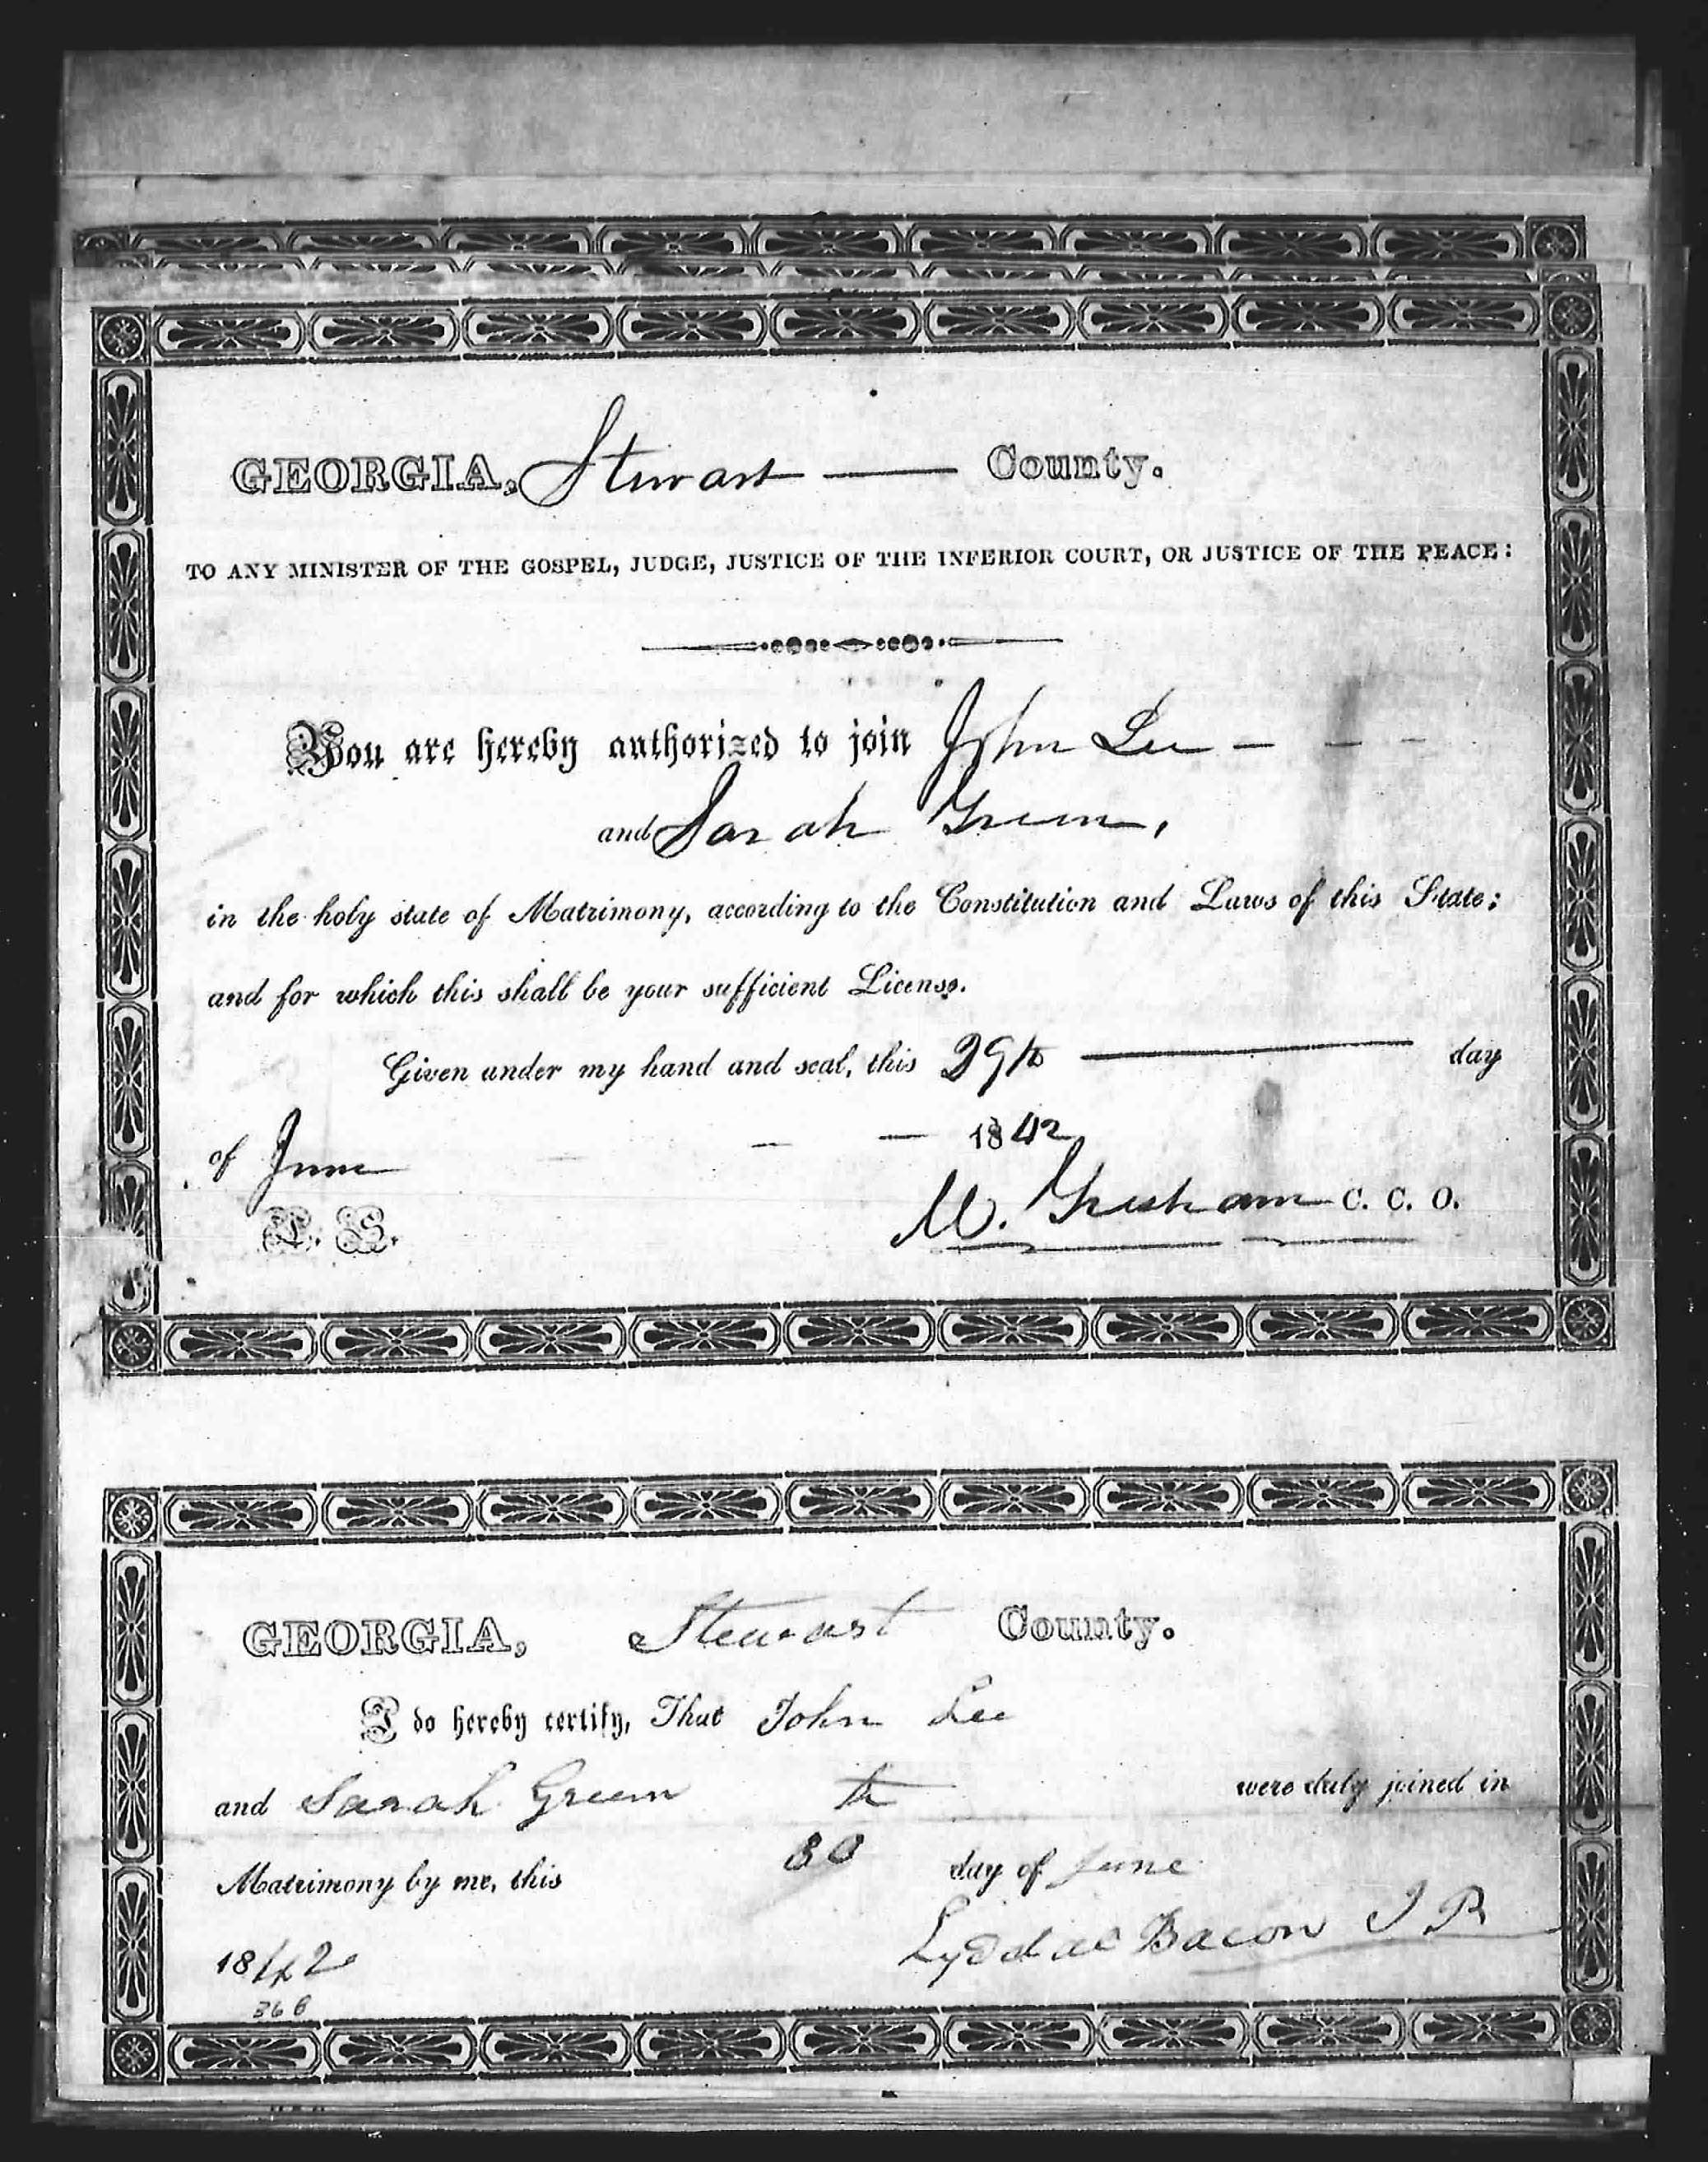 GEORGIA, Stewart County.
TO ANY MINISTER OF THE GOSPEL, JUDGE, JUSTICE OF THE INFERIOR COURT, OR JUSTICE OF THE PEACE:
You are hereby authorized to join John Lee
and Sarah Green,
in the holy state of Matrimony, according to the Constitution and Laws of this State;
and for which this shall be your sufficient License.
Given under my hand and seal, this 29th day
of June 1842
L. S. M. Gresham C. C. O.
GEORGIA, Stewart County.
I do hereby certify, That John Lee
and Sarah Green were duly joined in
Matrimony by me, this 30th day of June
1842 Lyddal Bacon J P